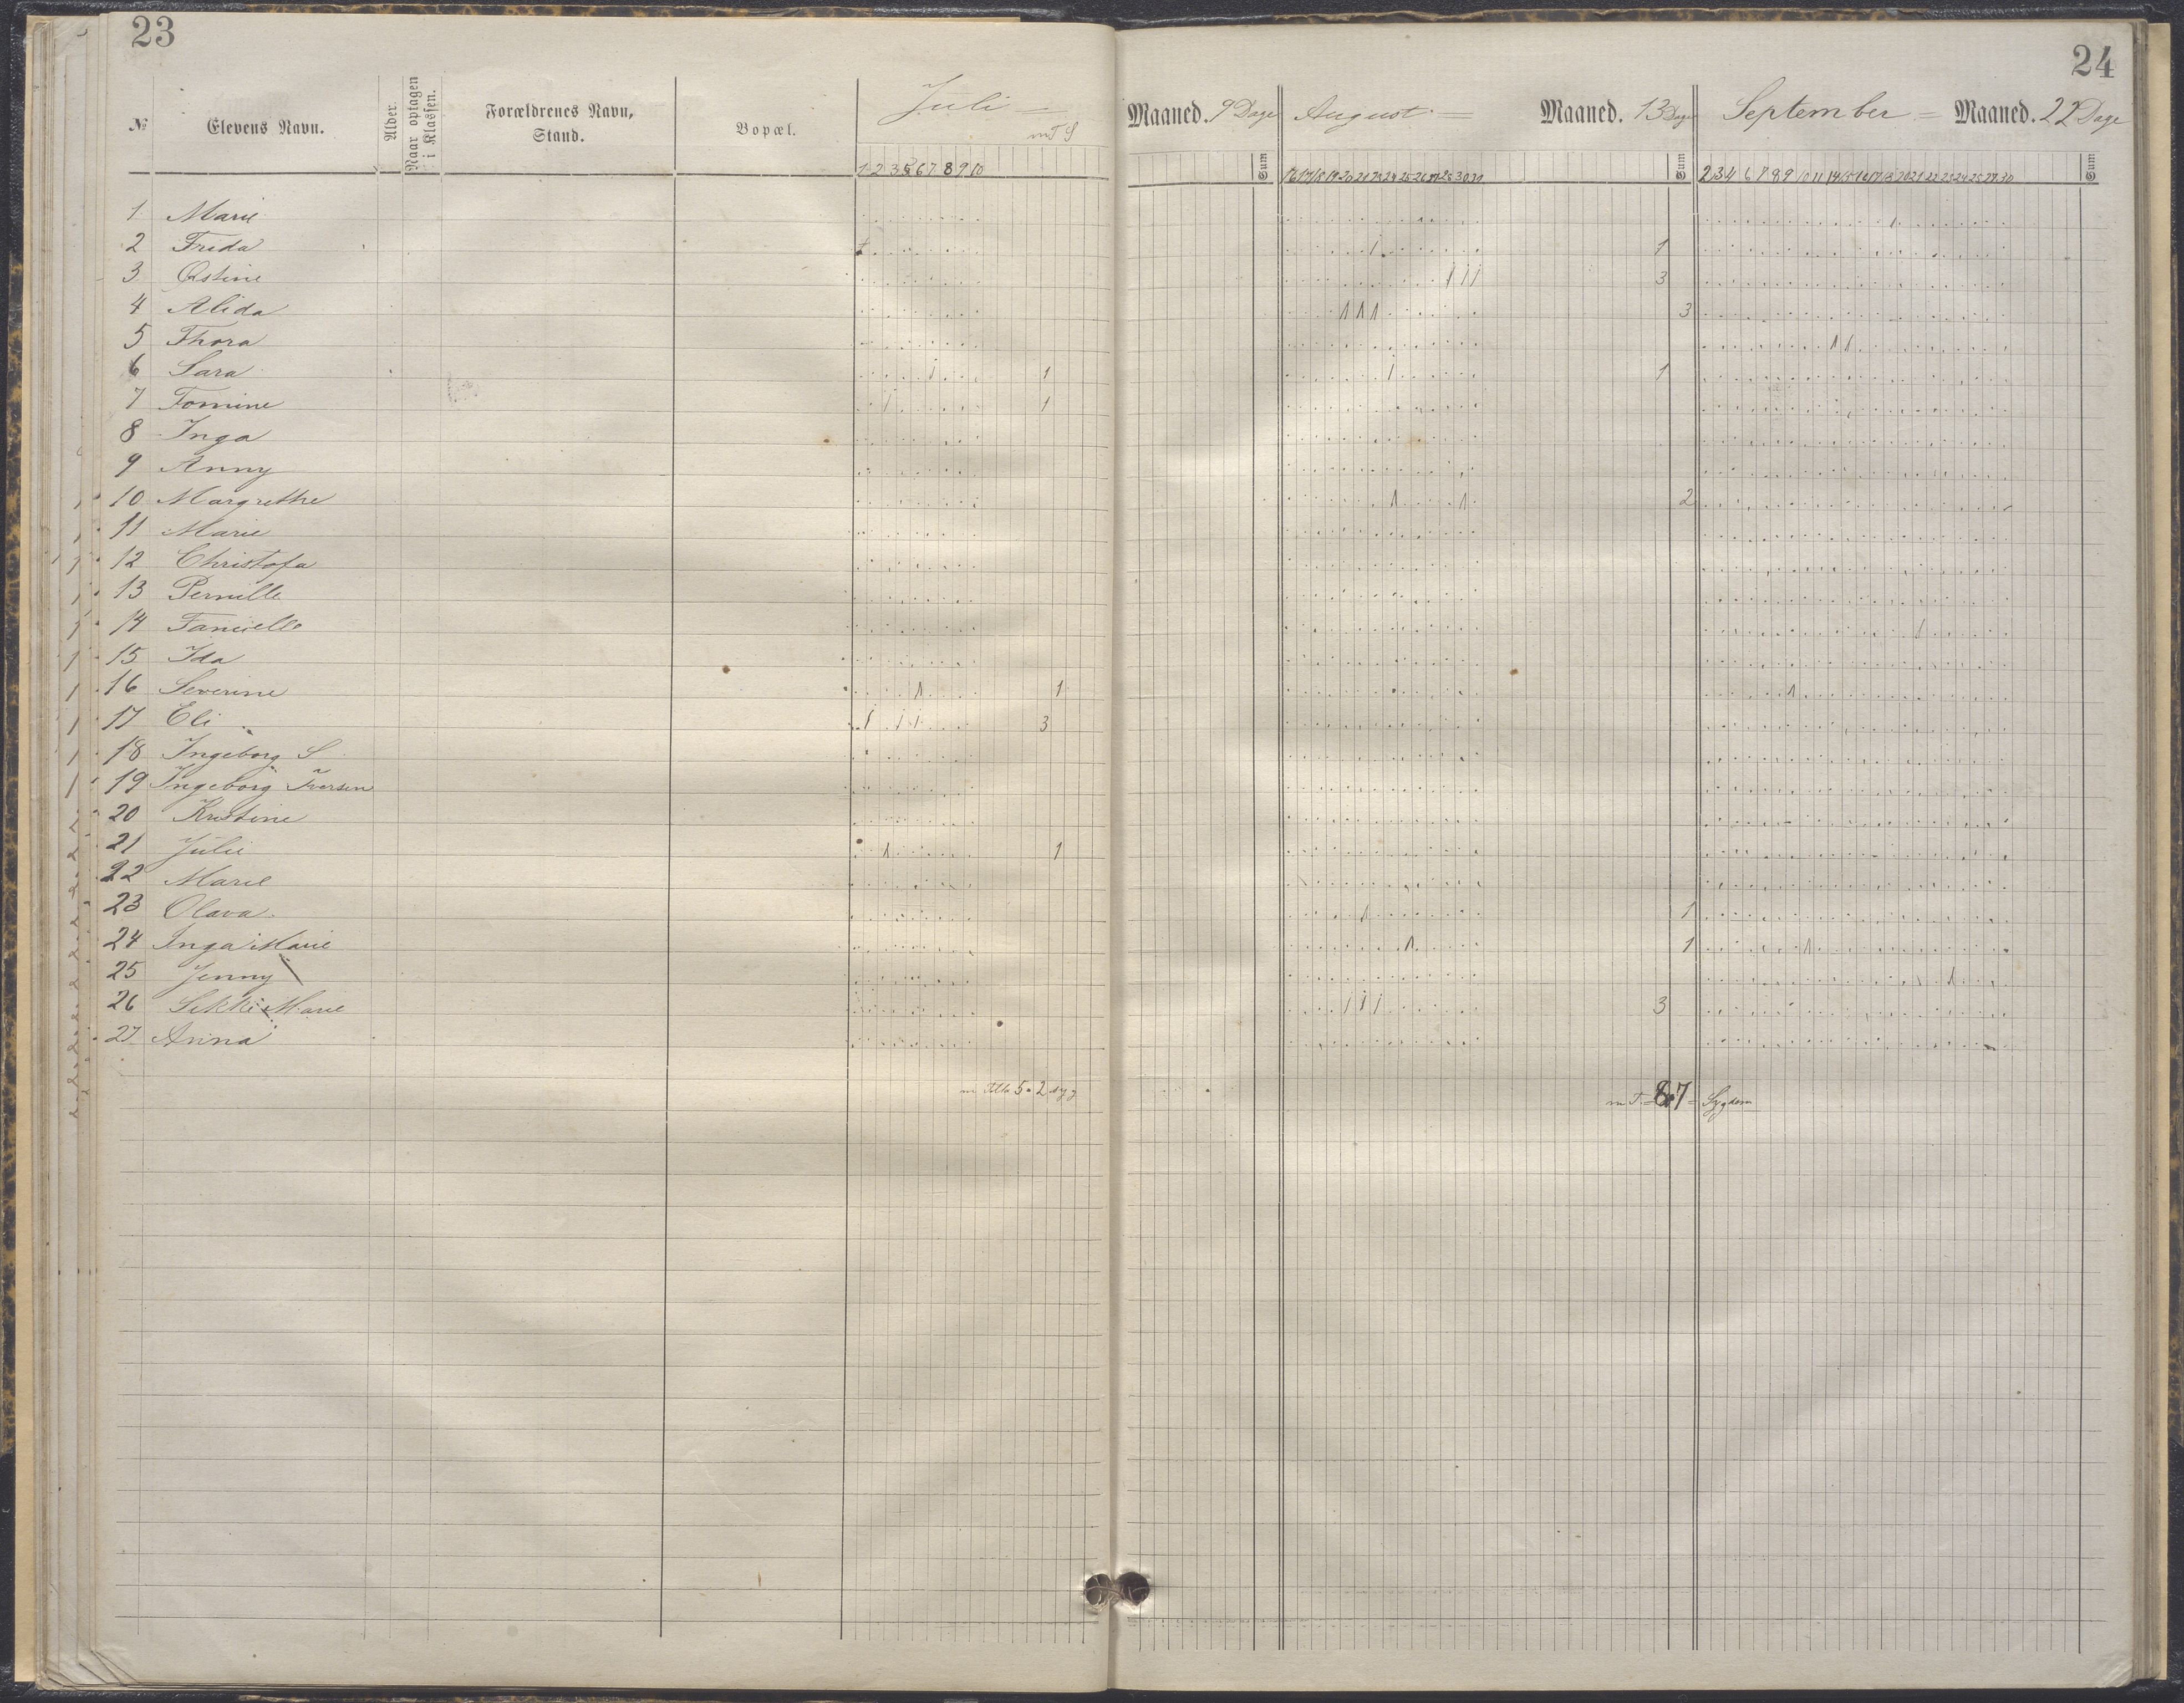 23
24
№ Elevens Navn. Alder. Naar optagen i Klassen. Forældrenes Navn, Stand. Bopæl. Juli Maaned. 9 Dage August Maaned. 13 Dage September Maaned. 22 Dage
m T S
1 2 3 5 6 7 8 9 10 Sum 16 17 18 19 20 21 23 24 25 26 27 28 30 31 Sum 2 3 4 6 7 8 9 10 11 14 15 16 17 18 20 21 22 23 24 25 27 30 Sum
1 Marie
2 Frida 1
3 Østine 3
4 Alida 3
5 Thora
6 Sara 1 1
7 Tomine 1
8 Inga
9 Anny
10 Margrethe 2
11 Marie
12 Christofa
13 Pernille
14 Fancielle
15 Ida
16 Severine 1
17 Eli 3
18 Ingeborg S
19 Ingeborg Iversen
20 Kristine
21 Julie 1
22 Marie
23 Olava 1
24 Inga Marie 1
25 Jenny
26 Sikke Marie 3
27 Anna
m Till 5 = 2 syg
m T. = 8 7 = Sygdom